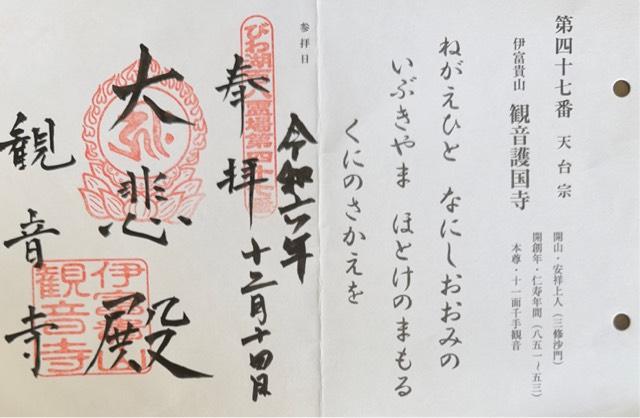 第四十七番 天台宗
伊富貴山 観音護国寺
開山・安祥上人（三修沙門）
開創年・仁寿年間（八五一〜五三）
本尊・十一面千手観音
ねがえひと なにしおおみの
いぶきやま ほとけのまもる
くにのさかえを
参拝日
令和六年
十二月十四日
奉拝
びわ湖百八霊場第四十七番
大悲殿
観音寺
伊富貴山
観音寺